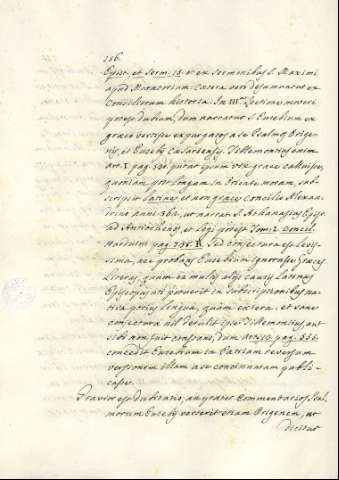 186.
Epist. et Serm. 18. ex sermonibus S. Maximi
apud Muratorium. Cætera verò desumuntur ex
Conciliorum historia. In III.æ Lectione moveri
potest dubium, dum narratur S. Eusebium ex
græco vertisse expurgatos a se Psalmos Origenis,
et Eusebij Cæsariensis. Tillemontius enim
art. 3. pag. 530. putat ipsum vix græce calluisse,
quoniam post longam in Oriente moram, subscripsit
latine, et non græce Concilio Alexandrino
anni 362. ut narrat S. Athanasius Epist.
ad Antiochenos, et legi potest Tom. 2. Concil.
Harduini pag. 235. Sed conjectura est levissima,
nec probans Eusebium ignorasse Græcas
Literas, quum ex multis alijs causis Latinus
Episcopus uti potuerit in subscriptionibus nativa
potius lingua, quàm extera: et sane
conjectura nil detulit ipse Tillemontius, aut
sibi non fuit constans, dum pag. 556.
concedit Eusebium in Patriam reversum
versionem illam a se concinnatam publicasse.
Gravior est dubitatio, an præter Commentarios Psalmorum
Eusebij verterit etiam Origenem, ut
dicitur